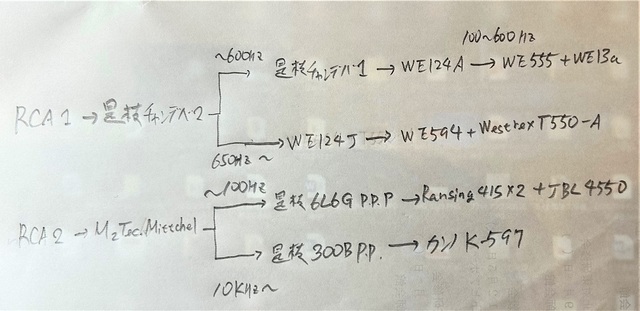 100~600Hz
~600Hz
是枝チャンデバ-1 → WE124A → WE555 + WE13a
RCA1 → 是枝チャンデバ-2
→ WE124J → WE594 + Westrex T550-A
650Hz ~
~100Hz
是枝 6L6G P.P.P → Ransing 415×2 + JBL 4550
RCA2 → M2Tec. Mittchel
是枝 300B P.P. → カノ K-597
10KHz ~